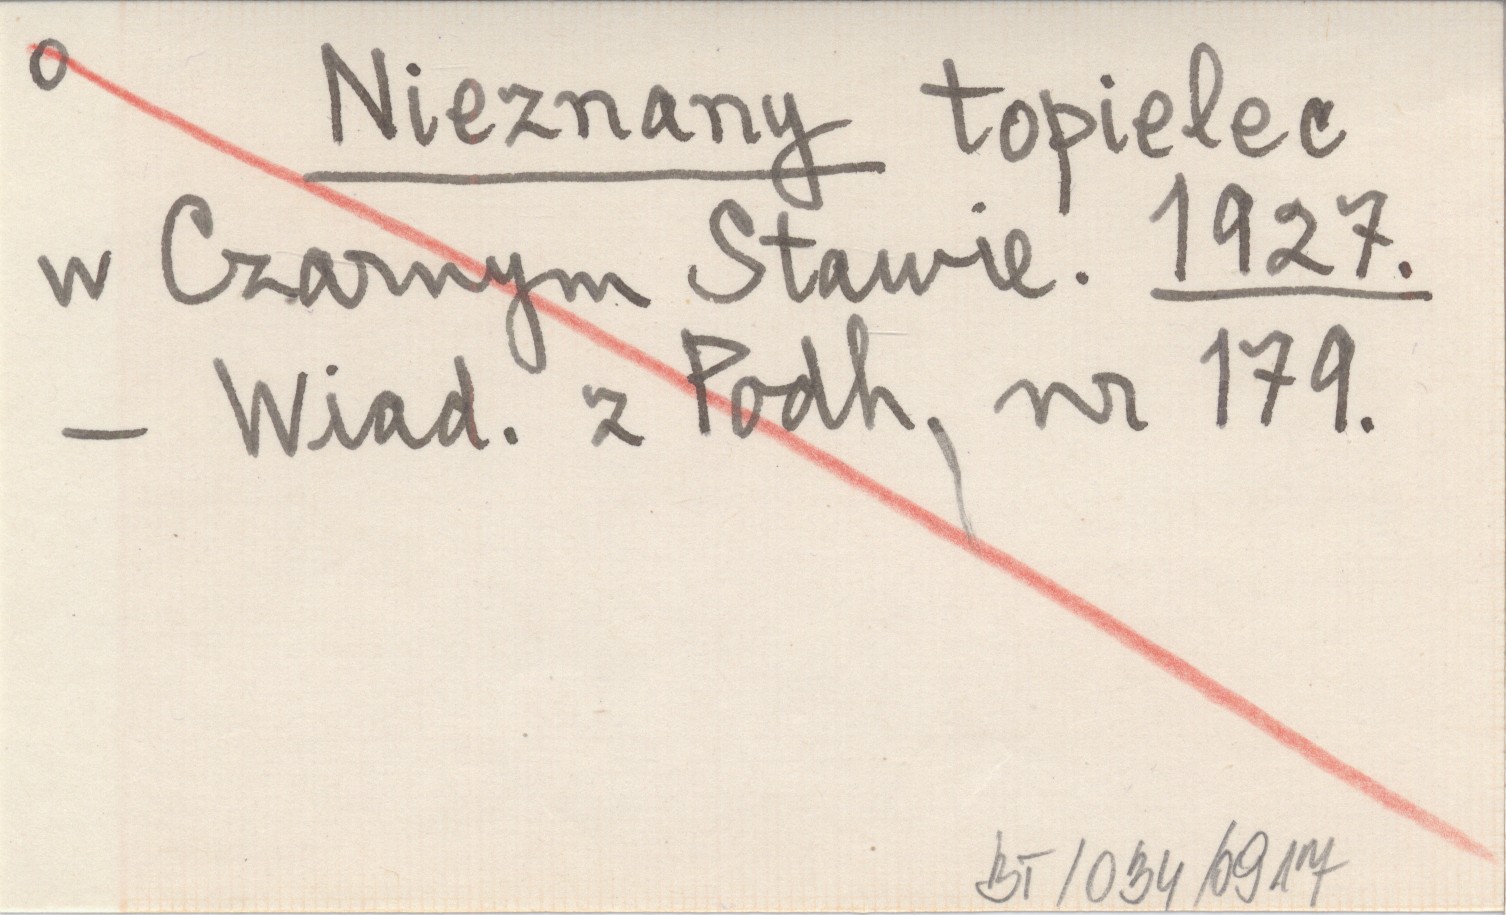 o Nieznany topielec
w Czarnym Stawie. 1927.
– Wiad. z Podh, nr 179.
BT/034/0917